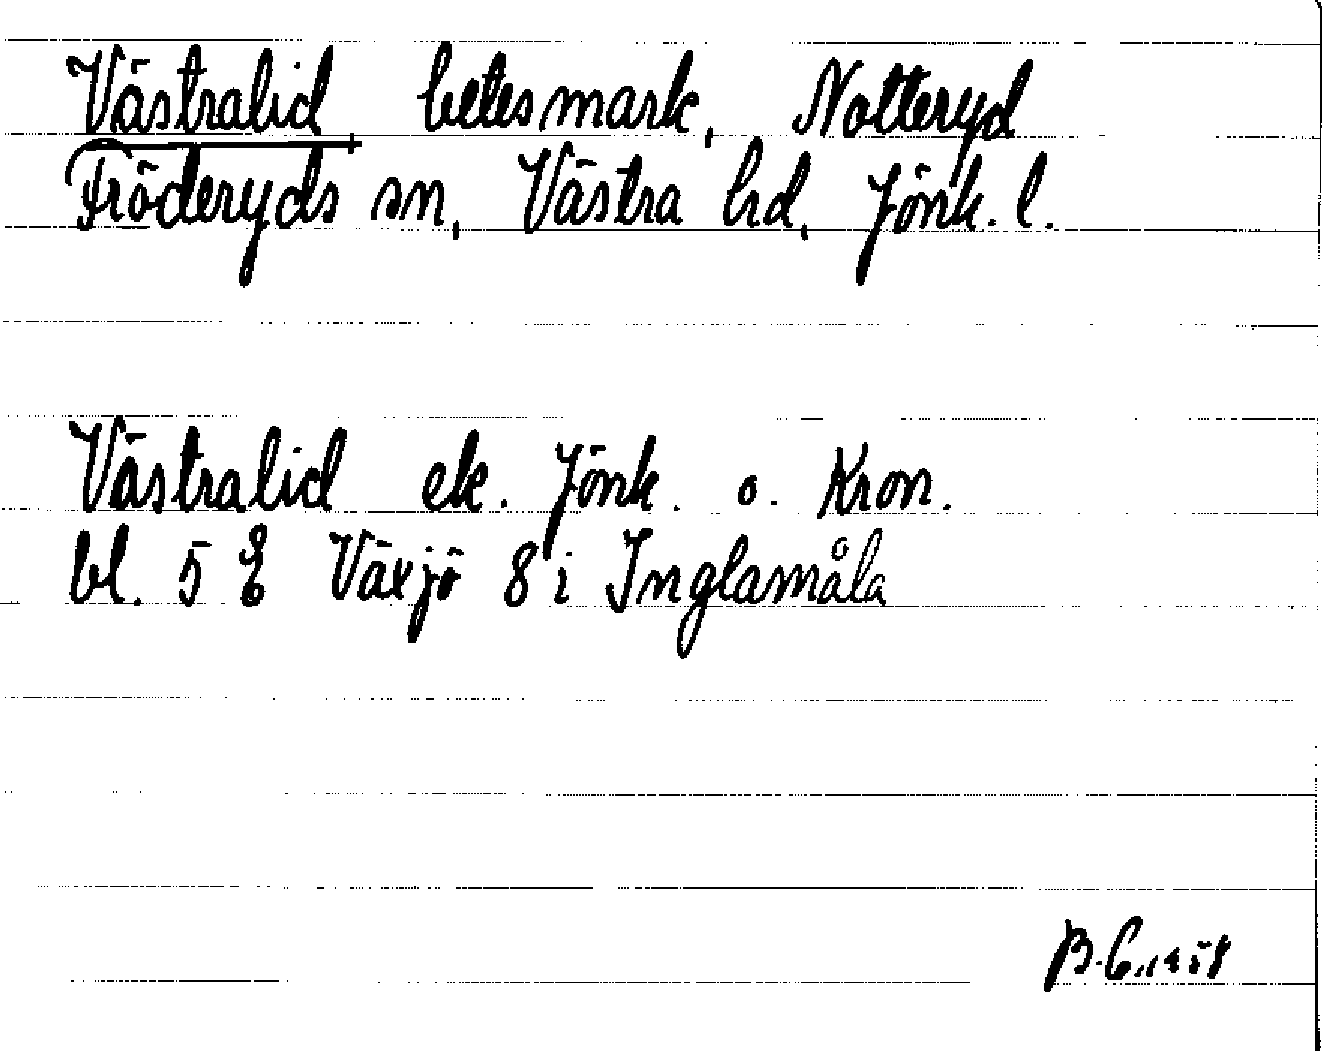 Västralid, betesmark, Notteryd
Fröderyds sn, Västra hd, Jönk. l.
Västralid ek. Jönk. o. Kron.
bl. 5 E Växjö 8 i Inglamåla